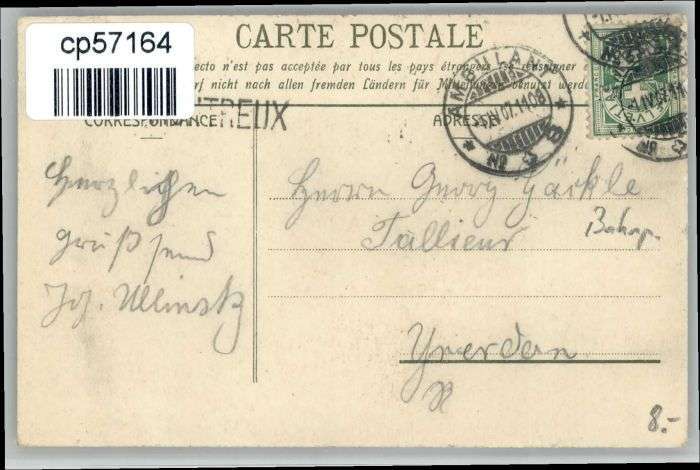 cp57164
CARTE POSTALE
ecto n'est pas acceptée par tous les pays étrangers
rf nicht nach allen fremden Ländern für
CORRESPONDANCE
TREUX
ADRESSE
AMBULANT
Herzlichen
Gruß send
Jos.
Herrn Georg Gäckle
Tallieur
Bahnp.
Yverdon
8.-